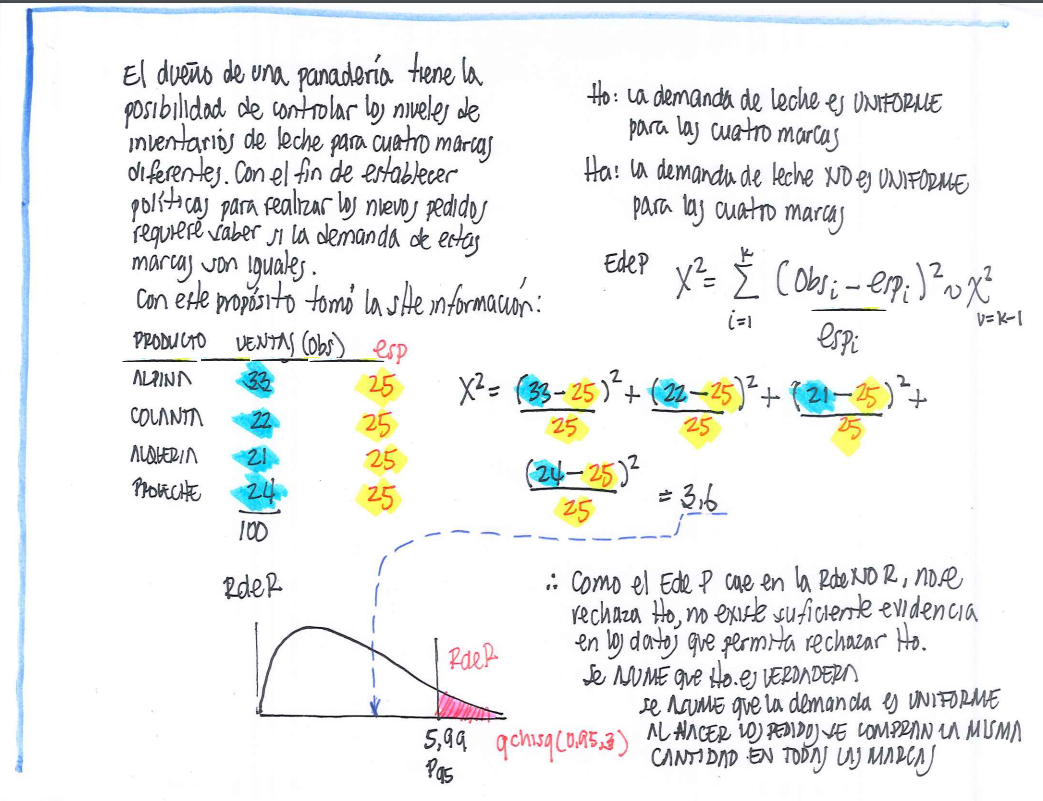 El dueño de una panadería tiene la
posibilidad de controlar los niveles de
inventarios de leche para cuatro marcas
diferentes. Con el fin de establecer
políticas para realizar los nuevos pedidos
requiere saber si la demanda de estas
marcas son iguales.
Con este propósito tomó la ste información:
PRODUCTO VENTAS (Obs) esp
ALPINA 33 25
COLANTA 22 25
ALQUERIA 21 25
PROLECHE 24 25
100
Ho: La demanda de leche es UNIFORME
para las cuatro marcas
Ha: la demanda de leche NO es UNIFORME
para las cuatro marcas
EdeP X² = Σ (Obsi - espi)² ~ X²
k
i=1
espi
v=k-1
X² = (33-25)² + (22-25)² + (21-25)² +
25 25 25
(24-25)² = 3,6
25
RdeR
RdeR
5,99 qchisq(0,95,3)
P95
∴ Como el EdeP cae en la RdeNOR, no se
rechaza Ho, no existe suficiente evidencia
en los datos que permita rechazar Ho.
Se ASUME que Ho. es VERDADERA
se ASUME que la demanda es UNIFORME
AL HACER LOS PEDIDOS SE COMPRAN LA MISMA
CANTIDAD EN TODAS LAS MARCAS